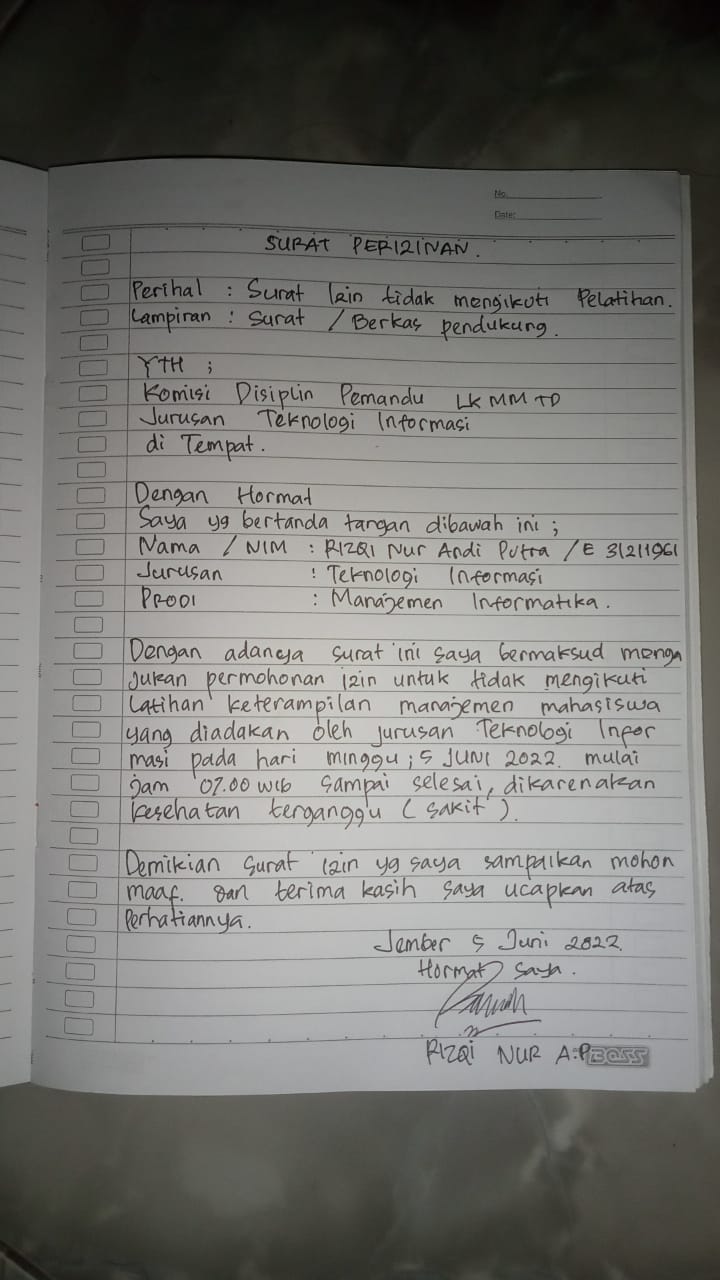 No.
Date:
SURAT PERIZINAN.
Perihal : Surat Izin tidak mengikuti Pelatihan.
Lampiran : Surat / Berkas pendukung.
YTH ;
Komisi Disiplin Pemandu LKMM TD
Jurusan Teknologi Informasi
di Tempat.
Dengan Hormat
Saya yg bertanda tangan dibawah ini ;
Nama / NIM : RIZQI Nur Andi Putra / E 31211961
Jurusan : Teknologi Informasi
PRODI : Manajemen Informatika.
Dengan adanya surat ini saya bermaksud menga
jukan permohonan izin untuk tidak mengikuti
Latihan keterampilan manajemen mahasiswa
yang diadakan oleh jurusan Teknologi Infor
masi pada hari minggu ; 5 JUNI 2022. mulai
jam 07.00 WIB sampai selesai, dikarenakan
kesehatan terganggu ( sakit ).
Demikian surat izin yg saya sampaikan mohon
maaf. dan terima kasih saya ucapkan atas
Perhatiannya.
Jember 5 Juni 2022.
Hormat saya.
RIZQI NUR A.P.
BOSS